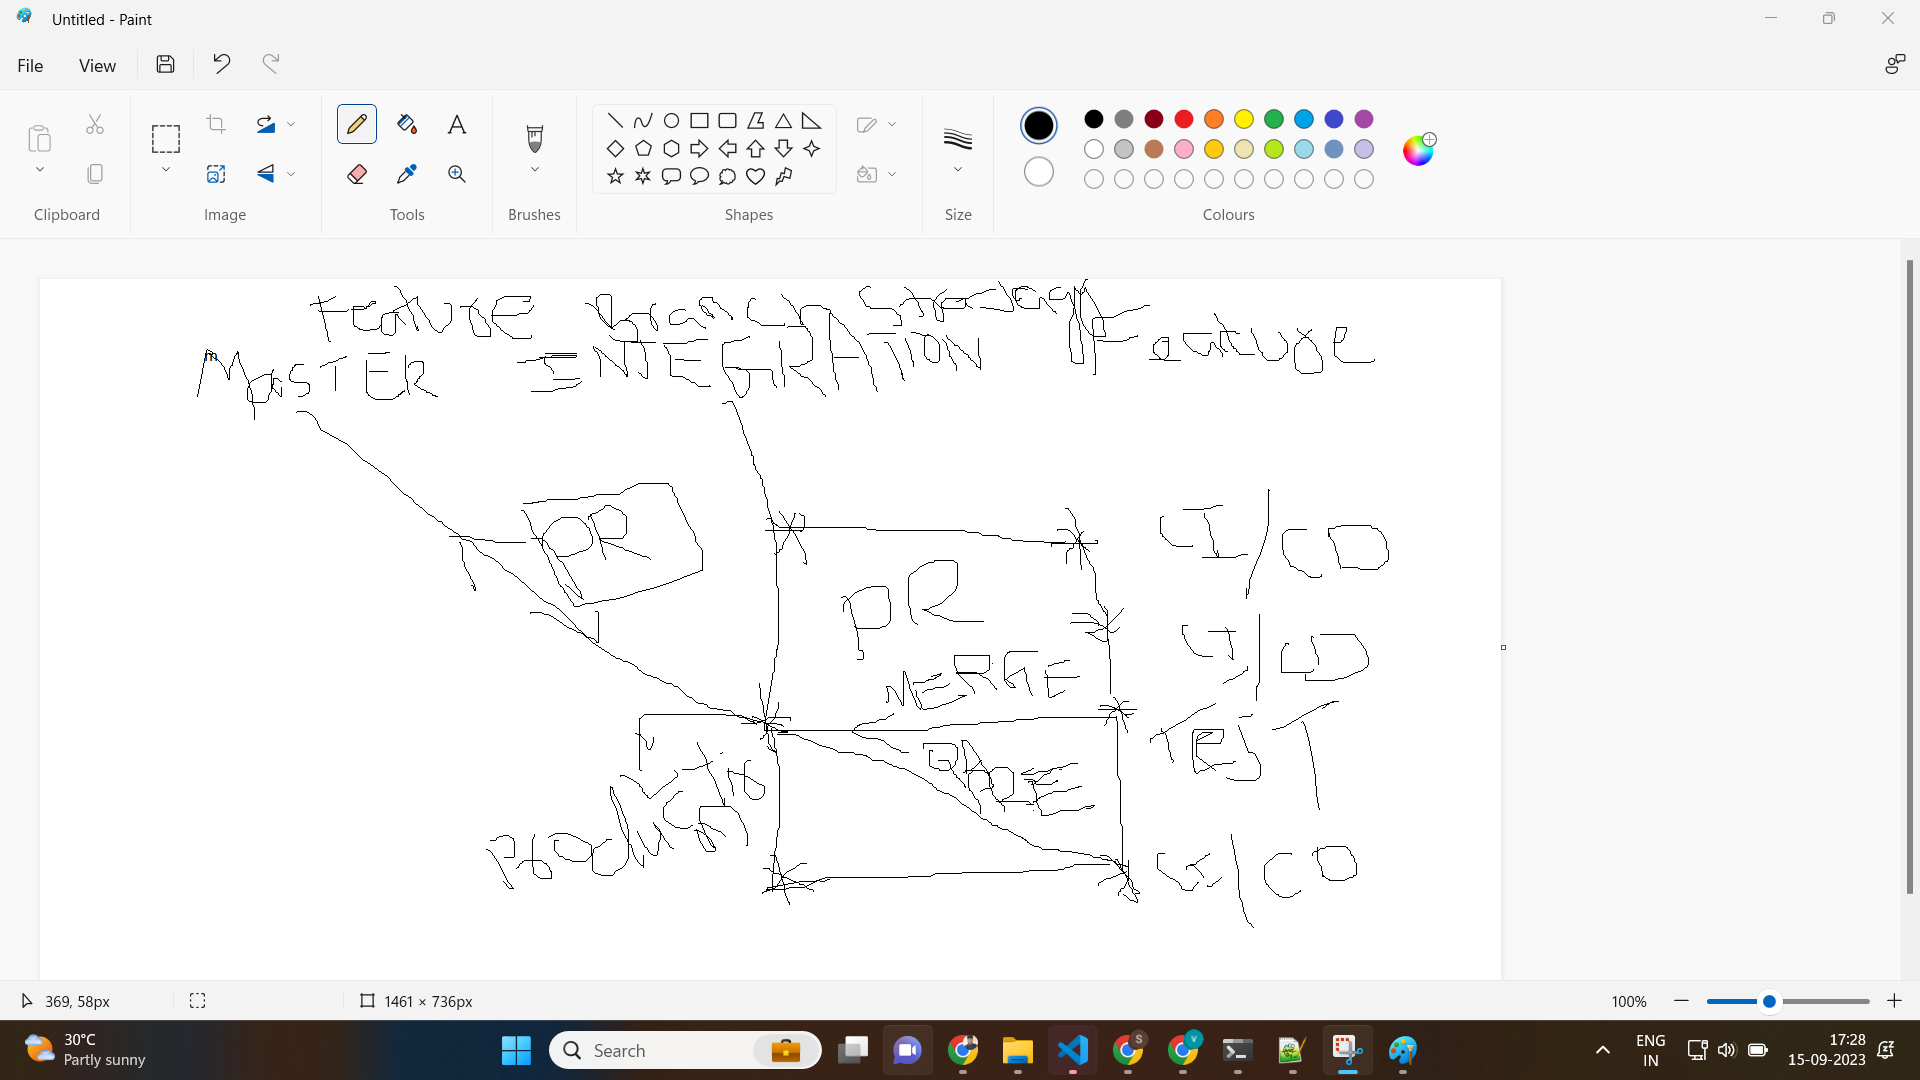 Untitled - Paint
File
View
Clipboard
Image
Tools
Brushes
Shapes
Size
Colours
Feature branch Strategy
m
MASTER
INEGRATION
Feature
PR
CI/CD
PR
CI/CD
MERGE
TEST
CI/CD
369, 58px
1461 × 736px
100%
30°C
Partly sunny
Search
S
V
ENG
IN
17:28
15-09-2023